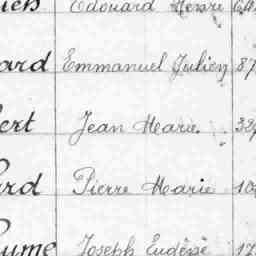 Edouard Henri
ard Emmanuel Julien 87
ert Jean Marie 32
ard Pierre Marie 10
ume Joseph Eudèse 17